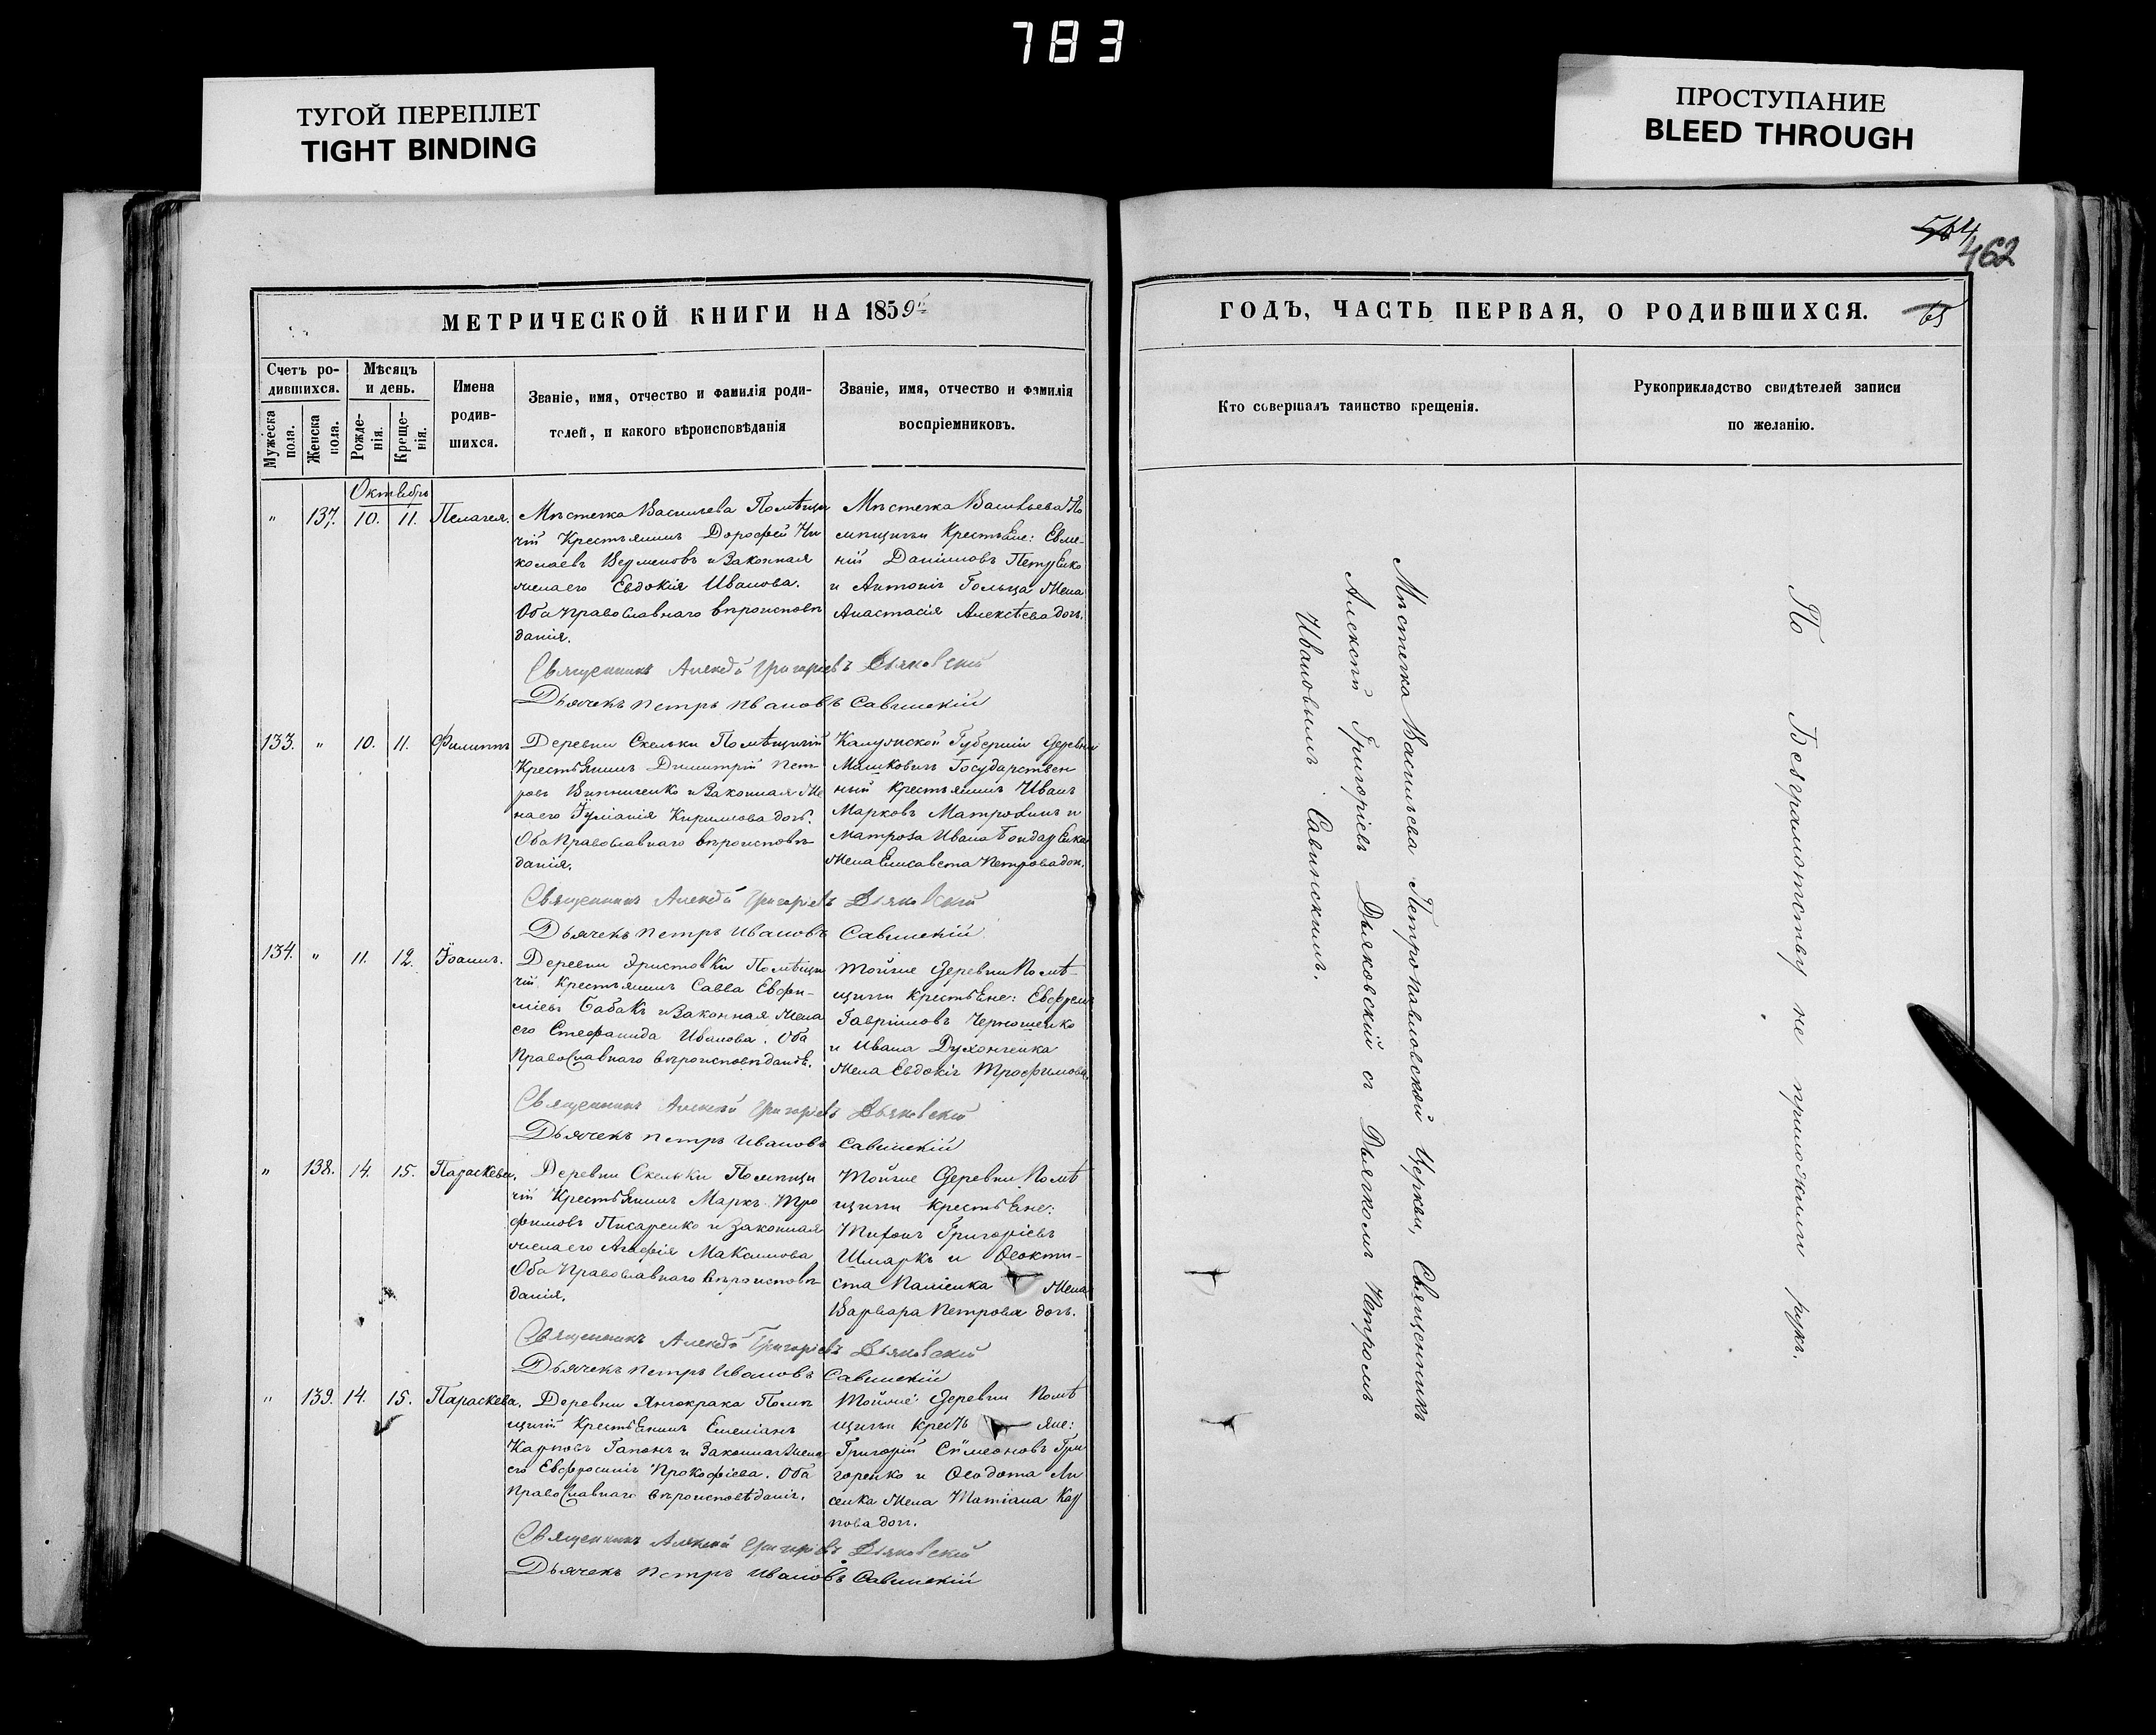 783
ТУГОЙ ПЕРЕПЛЕТ
TIGHT BINDING
ПРОСТУПАНИЕ
BLEED THROUGH
564
462
МЕТРИЧЕСКОЙ КНИГИ НА 1859й
Счетъ ро-
дившихся.
Мужеска пола.
Женска пола.
Мѣсяцъ
и день.
Рожде-
нія.
Креще-
нія.
Имена
родив-
шихся.
Званіе, имя, отчество и фамилія роди-
телей, и какого вѣроисповѣданія
Званіе, имя, отчество и фамилія
воспріемниковъ.
Октябрь
" 137. 10. 11. Пелагея.
Мѣстечка Васильева Помѣщи
чій Крестьянинъ Дорофей Ни
колаевъ и Законная
жена его Евдокія Иванова.
Оба Православнаго вѣроисповѣ
данія.
Мѣстечка Васильева По
мѣщичьи Крестьяне: Евме-
ній Даниловъ Петренко
и Антонія Гольца Жена
Анастасія Алексѣева доч.
Священникъ Алексѣй Григоріевъ Дьяковскій
Дьячекъ Петръ Ивановъ Савинскій
133. " 10. 11. Филиппъ
Деревни Скельки Помѣщичій
Крестьянинъ Димитрій Пет
ровъ Винниченко и Законная Же
на его Іуліанія Кирилова доч.
Оба Православнаго вѣроисповѣ
данія.
Калужской Губерніи Деревни
Машковичъ Государствен
ный Крестьянинъ Иванъ
Марковъ Матрохинъ и
Матроза Ивана Бондаренка
Жена Елисавета Петрова доч.
Священникъ Алексѣй Григоріевъ Дьяковскій
Дьячекъ Петръ Ивановъ Савинскій
134. " 11. 12. Іоаннъ.
Деревни Эристовки Помѣщи
чій Крестьянинъ Савва Евфи-
міевъ Бабакъ и Законная Жена
его Стефанида Иванова. Оба
Православнаго вѣроисповѣданія.
Тойже Деревни Помѣ-
щичьи Крестьяне: Евфремъ
Гавріиловъ
и Ивана Духонченка
Жена Евдокія Трофимова.
Священникъ Алексѣй Григоріевъ Дьяковскій
Дьячекъ Петръ Ивановъ Савинскій
" 138. 14. 15. Параскева.
Деревни Скельки Помѣщи
чій Крестьянинъ Маркъ Тро
фимовъ Писаренко и Законная
жена его Агафія Максимова
Оба Православнаго вѣроисповѣ
данія.
Тойже Деревни Помѣ
щичьи Крестьяне:
Миронъ Григоріевъ
Шмаркъ и Ѳеокти-
ста Паліенка Жена
Варвара Петрова доч.
Священникъ Алексѣй Григоріевъ Дьяковскій
Дьячекъ Петръ Ивановъ Савинскій
" 139. 14. 15. Параскева.
Деревни Янчокрака Помѣ
щичій Крестьянинъ Емеліанъ
Карповъ Гапонъ и Законная Жена
его Евфросинія Прокофіева. Оба
Православнаго вѣроисповѣданія.
Тойже Деревни Помѣ
щичьи Крестьяне:
Григорій Сѵмеоновъ Гри
горенко и Ѳеодота Ли
сенка Жена Татіана Кар
пова доч.
Священникъ Алексѣй Григоріевъ Дьяковскій
Дьячекъ Петръ Ивановъ Савинскій
ГОДЪ, ЧАСТЬ ПЕРВАЯ, О РОДИВШИХСЯ.
65
Кто совершалъ таинство крещенія.
Рукоприкладство свидѣтелей записи
по желанію.
Мѣстечка Васильева Петропавловской Церкви, Священникъ
Алексѣй Григоріевъ Дьяковскій съ Дьячкомъ Петромъ
Ивановымъ Савинскимъ.
По Безграмотству не приложили рукъ.